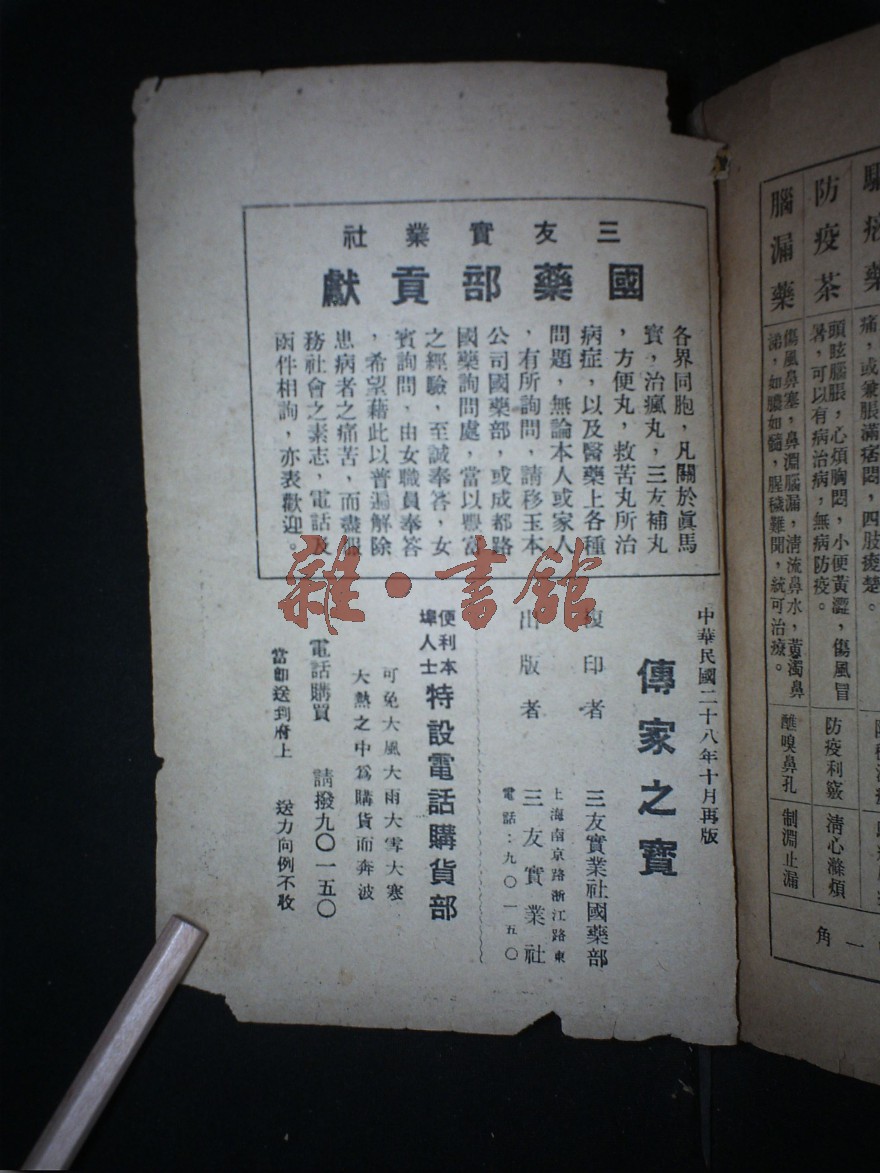 三友實業社
國藥部貢獻
各界同胞，凡關於眞馬
寳，治瘋丸，三友補丸
，方便丸，救苦丸所治
病症，以及醫藥上各種
問題，無論本人或家人
，有所詢問，請移玉本
公司國藥部，或成都路
國藥詢問處，當以豐富
之經驗，至誠奉答，女
賓詢問，由女職員奉答
，希望藉此以普遍解除
患病者之痛苦，而盡服
務社會之素志，電話及
函件相詢，亦表歡迎。
中華民國二十八年十月再版
傳家之寳
復印者 三友實業社國藥部
出版者 三友實業社
上海南京路浙江路東
電話：九〇一五〇
便利本埠人士 特設電話購貨部
可免大風大雨大雪大寒
大熱之中爲購貨而奔波
電話購買 請撥九〇一五〇
當卽送到府上 送力向例不收
痛，或兼脹滿痞悶，四肢痠楚。
防疫茶
頭眩腦脹，心煩胸悶，小便黃澀，傷風冒
暑，可以有病治病，無病防疫。
防疫利竅 淸心滌煩
腦漏藥
傷風鼻塞，鼻淵腦漏，淸流鼻水，黃濁鼻
涕，如膿如髓，腥穢難聞，統可治療。
蘸嗅鼻孔 制淵止漏
一角
雜·書館